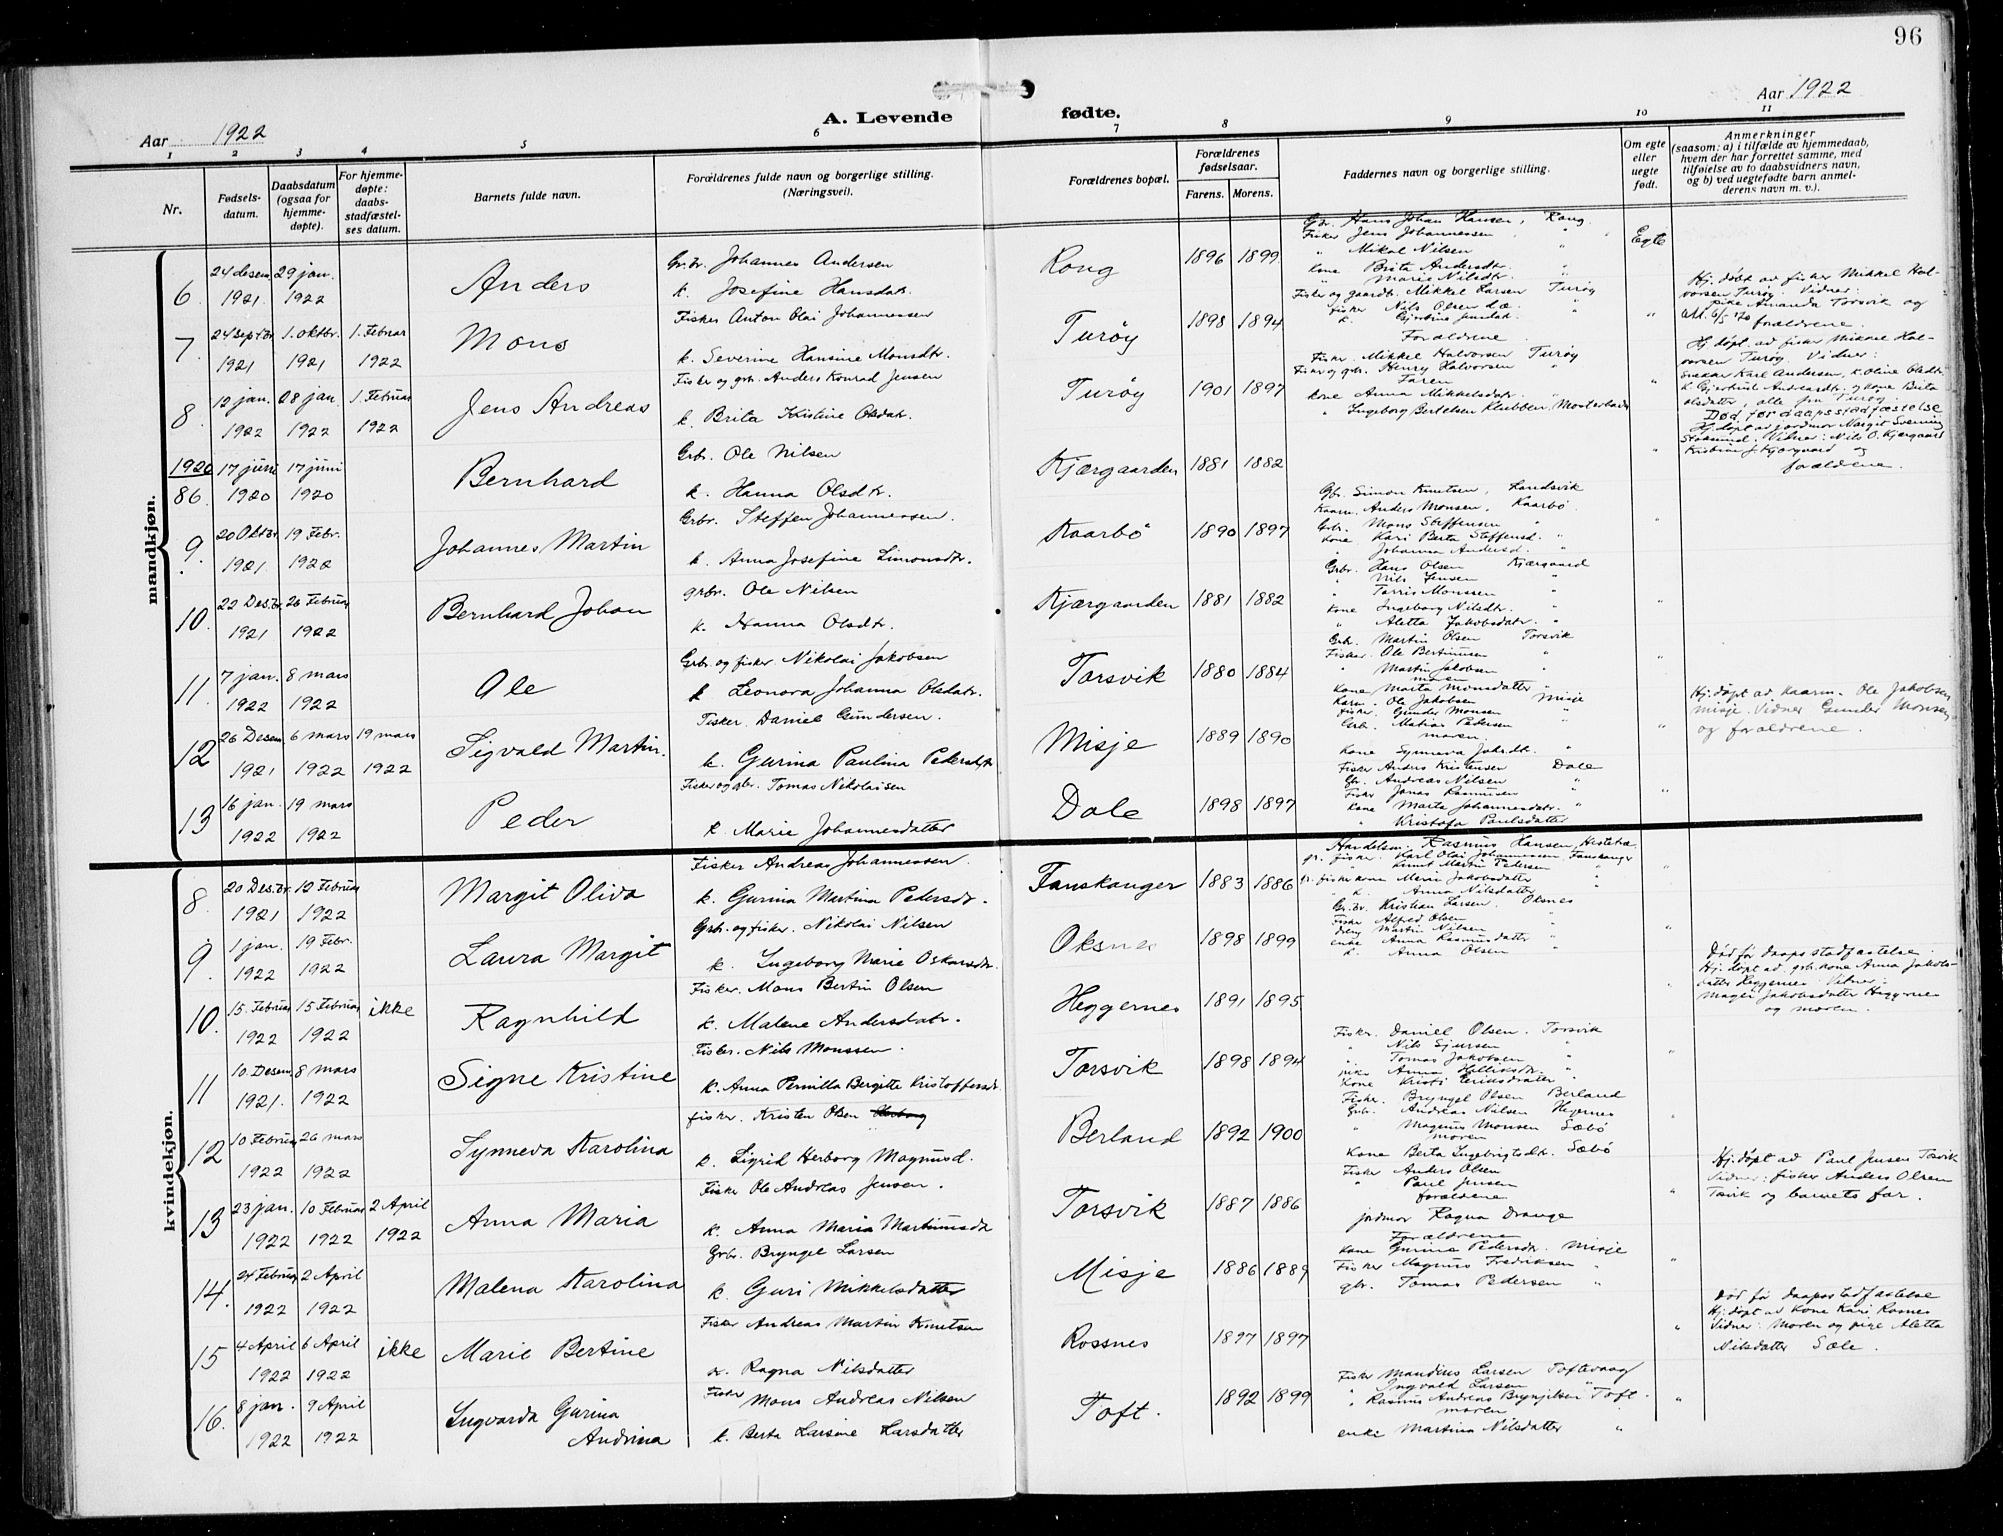 96
Aar 1922
A. Levende fødte.
Aar 1922
1 2 3 4 5 6 7 8 9 10 11
Nr.
Fødsels-
datum.
Daabsdatum
(ogsaa for
hjemme-
døpte).
For hjemme-
døpte:
daabs-
stadfæstel-
ses datum.
Barnets fulde navn.
Forældrenes fulde navn og borgerlige stilling.
(Næringsvei).
Forældrenes bopæl.
Forældrenes
fødselsaar.
Farens. Morens.
Faddernes navn og borgerlige stilling.
Om egte
eller
uegte
født.
Anmerkninger
(saasom: a) i tilfælde av hjemmedaab,
hvem der har forrettet samme, med
tilføielse av to daabsvidners navn,
og b) ved uegtefødte barn anmel-
derens navn m. v.).
mandkjøn.
6. 24 desem. 1921. 29 jan. 1922
Anders
Gr.br. Johannes Andersen
k. Josefine Hansdatr.
Rong 1896 1899
Gbr. Hans Johan Hansen, Rong.
Fisker Jens Johannessen "
" Mikal Nilsen "
Kone Brita Andersdtr. "
" Marie Nilsdtr. "
Egte
7. 24 septbr. 1921 1. oktbr. 1921 1. Februar 1922
Mons
Fisker Anton Olai Johannessen
k. Severine Hansine Monsdtr.
Turøy 1898 1894
Fisker og gaardbr. Mikkel Larsen Turøy
Fisker Nils Olsen
Forældrene
"
Hj. døbt av fisker Mikkel Hal-
vorsen Turøy. Vidner:
pike Amanda Torsvik og
forældrene.
8. 12 jan. 1922 28 jan. 1922 1. Februar 1922
Jens Andreas
Fisker og grb. Anders Konrad Jensen
k. Brita Kristine Olsdatr.
Turøy 1901 1897
Fisker. Mikkel Halvorsen Turøy
Fisker og gbr. Henry Halvorsen "
Faren
Kone Anna Mikkelsdatr. "
" Ingeborg Bertelsen Klubben,
"
Hj. døpt av fisker Mikkel Hal-
vorsen Turøy. Vidner:
Karl Andersen, k. Oline Olsdtr.
olsdatter, alle fra Turøy.
1920
86. 17 juni 1920 17 juni 1920
Bernhard
Grb. Ole Nilsen
k. Hanna Olsdtr.
Kjærgaarden 1881 1882
"
Død før daapsstadfæstelse
Hj. døpt av jordmor Margit
Vidner: Nils O. Kjærgaard
Kjærgaard og
forældrene.
9. 20 Oktbr. 1921 19 Febr. 1922
Johannes Martin
Grbr. Steffen Johannessen.
k. Anna Josefine Simonsdtr.
Kaarbø 1890 1897
Gbr. Simon Knutsen, Landsvik
Kaarm. Anders Monsen, Kaarbø.
Grbr. Mons Steffensen "
Kone Kari Berta Steffensd. "
" Johanna Andersd. "
"
10. 22 Des.br. 1921 26 Februar 1922
Bernhard Johan
grbr. Ole Nilsen
k. Hanna Olsdtr.
Kjærgaarden 1881 1882
Grbr. Hans Olsen Kjærgaard
" Nils Jensen "
" Torris Monssen "
Kone Ingeborg Nilsdtr. "
" Aletta Jakobsdatr. "
"
11. 7 jan. 1922 8 mars 1922
Ole
Grbr. og fisker Nikolai Jakobsen
k Leonora Johanna Olsdatr.
Torsvik 1880 1884
Grb. Martin Olsen Torsvik
Fisker. Ole Bertinusen "
" Martin Jakobsen "
moren
Kone Marta Monsdatter "
"
12. 26 Desem. 1921 6 mars 1922 19 mars 1922
Sigvald Martin.
Fisker. Daniel Gundersen.
k. Gurina Paulina Pedersdtr
Misje 1889 1890
Karm. Ole Jakobsen Misje
Fisker. Gunder Monsen "
Grb. Matias Pedersen "
moren.
Kone Synneva Johsdtr. "
"
Hj. døpt av. kaarm. Ole Jakobsen
Misje. Vidner Gunder Monsen,
og forældrene.
13. 16 jan. 1922 19 mars 1922
Peder
Fisker og gbr. Tomas Nikolaisen
k. Marie Johannesdatter
Dale 1898 1897
Fisker Anders Kristensen Dale
Gb. Andreas Nilsen "
Fisker Jonas Rasmusen "
Kone Marta Johannesdatr. "
" Kristofa Paulsdatter
"
kvindekjøn.
8. 20 Des.br. 1921 12 Februar 1922
Margit Oliva
Fisker Andreas Johannessen.
k. Gurina Martina Pedersdr.
Fanskanger 1883 1886
Handelsm. Rasmus Hansen
gr. fisker. Karl Olai Johannessen Fanskanger
" Knut Martin Pedersen "
gr. fisker kone Meri Jakobsdatter "
" k. Anna Nilsdatter "
"
9. 1 jan. 1922 19 Febr. 1922
Laura Margit
Grb. og fisker. Nikolai Nilsen
k. Ingeborg Marie Oskarsdtr.
Oksnes 1898 1899
Gr.br. Kristian Larsen. Oksnes
Fisker Alfred Olsen "
Martin Nilsen "
enke Anna Rasmusdatter "
k. Anna Olsen "
"
10. 15. Februar 1922 15 Februar 1922 ikke
Ragnhild
Fisker. Mons Bertin Olsen
k. Malene Andersdatr.
Heggernes 1891 1895
"
Død før daapsstadfæstelse.
Hj. døpt av. grb. kone Anna Jakobs-
datter Heggernes. Vidner:
Jakobsdatter Heggernes
og moren.
11 10. Desem. 1921. 8 mars 1922
Signe Kristine
Fisker. Nils Monssen.
k. Anna Pernilla Bergitte Kristoffersd.
Torsvik 1898 1894
Fisker. Daniel Olsen. Torsvik
" Nils Sjursen "
" Tomas Jakobsen "
pike Anna "
Kone Kristi Eriksdatter "
"
12 10 Februar 1922 26 mars 1922
Synneva Karolina
fisker. Kristen Olsen
k. Sigrid Herborg Magnusd.
Berland 1892 1900
Fisker. Bryngel Olsen Berland
Grb. Andreas Nilsen Hegernes
" Magnus Monsen Sæbø
moren
Kone Berta Ingebrigtsdtr. Sæbø
"
13 23 jan. 1922 10 Februar 1922 2 April 1922
Anna Maria
Fisker Ole Andreas Jensen.
k. Anna Maria Martinusdtr
Torsvik 1887 1886
Fisker Anders Olsen
" Paul Jensen
forældene
jordmor Ragna Drange
"
Hj. døpt av Paul Jensen Torsvik
Vidner: fisker Anders Olsen
Tosvik og barnets far.
14. 24 Februar 1922 2 April 1922
Malena Karolina
Grbr. Bryngel Larsen
k. Guri Mikkelsdatter
Misje 1886 1889
Forældrene
Kone Gurine Pedersdtr. Misje
Fisker Magnus Fredriksen "
gbr. Tomas Pedersen "
"
15 4 April 1922 6 April 1922 ikke
Marie Bertine
Fisker Andreas Martin Knutsen
k. Ragna Nilsdatter
Rossnes 1897 1897
"
Død før daapsstadfæstelse
Hj. døpt av Kone Kari Rosnes
Vidner: moren og pige Aletta
Nilsdatter Sæle.
16. 8 jan. 1922 9 April 1922
Ingvarda Gurina
Andrina
Fisker Mons Andreas Nilsen
k. Berta Larsine Larsdatter
Toft. 1892 1899
Fisker Mandius Larsen Toftevaag
" Ingvald Larsen "
" Rasmus Andreas Brynjelsen Toft.
moren
enke Martina Nilsdatter "
"